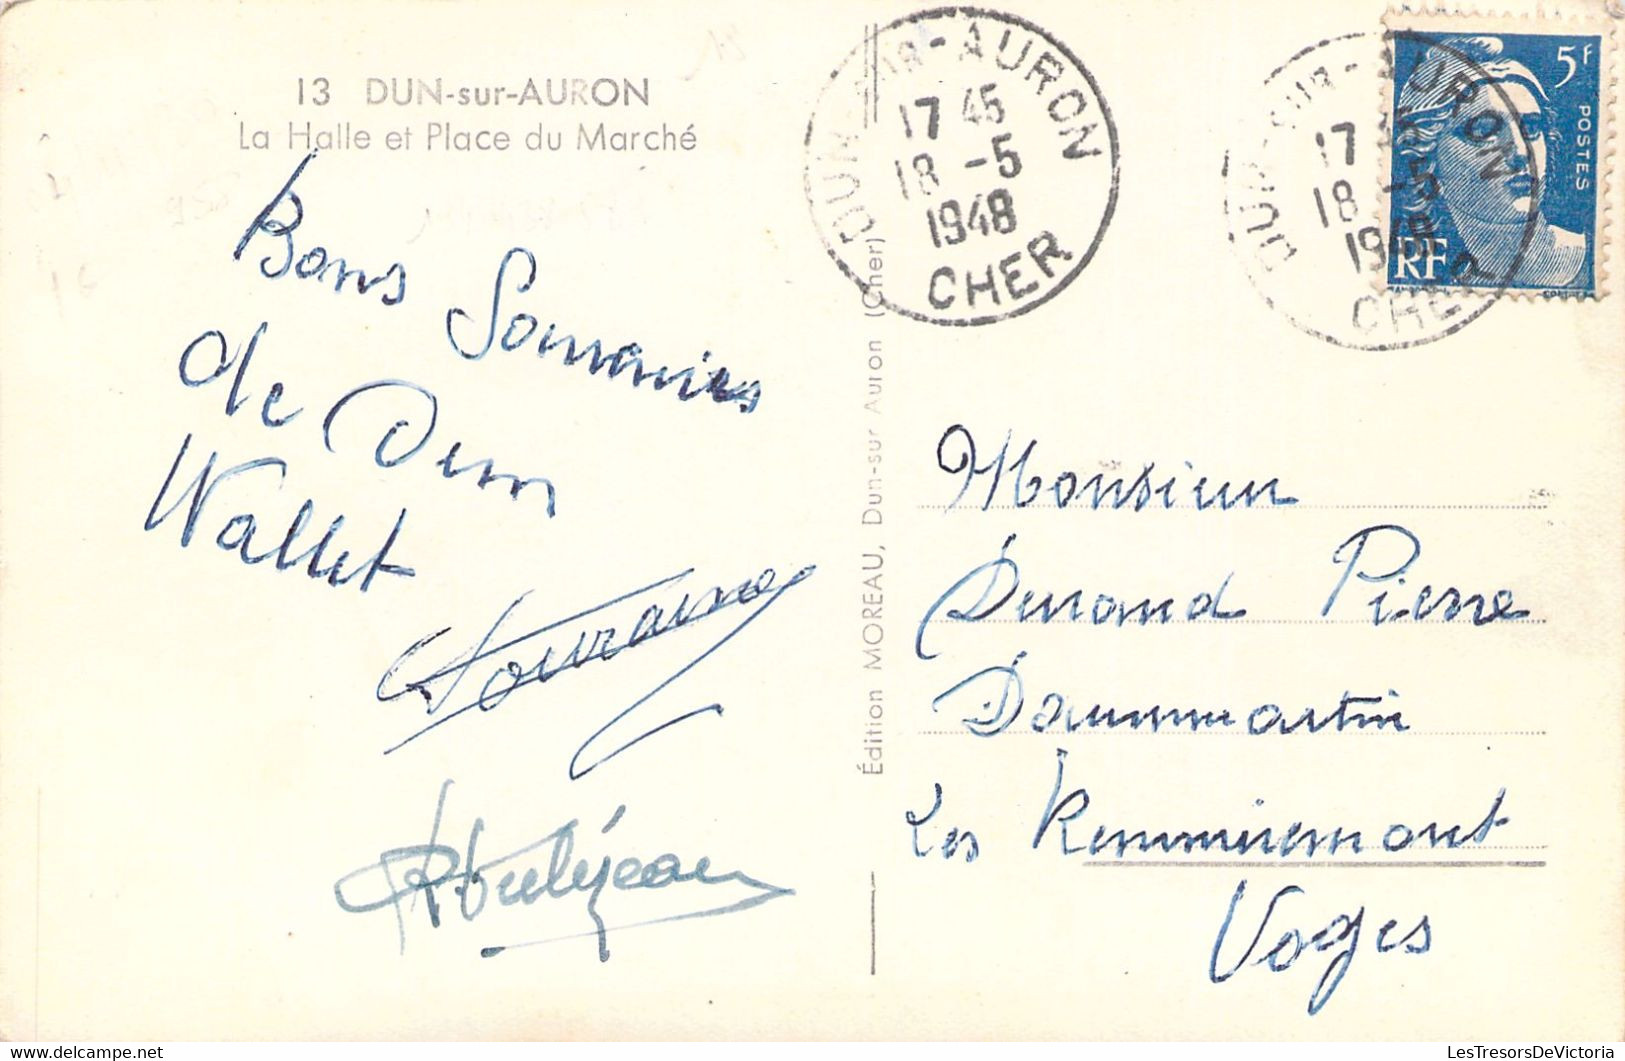 13 DUN-sur-AURON
La Halle et Place du Marché
Bons Souvenirs
de Dun
Wallet
DUN-SUR-AURON
17 45
18 -5
1948
CHER
DUN-SUR-AURON
17 45
18 -5
1948
CHER
5F
POSTES
RF
Édition MOREAU, Dun-sur Auron (Cher)
Monsieur
Durand Pierre
Dommartin
Les Remiremont
Voges
LesTresorsDeVictoria.com